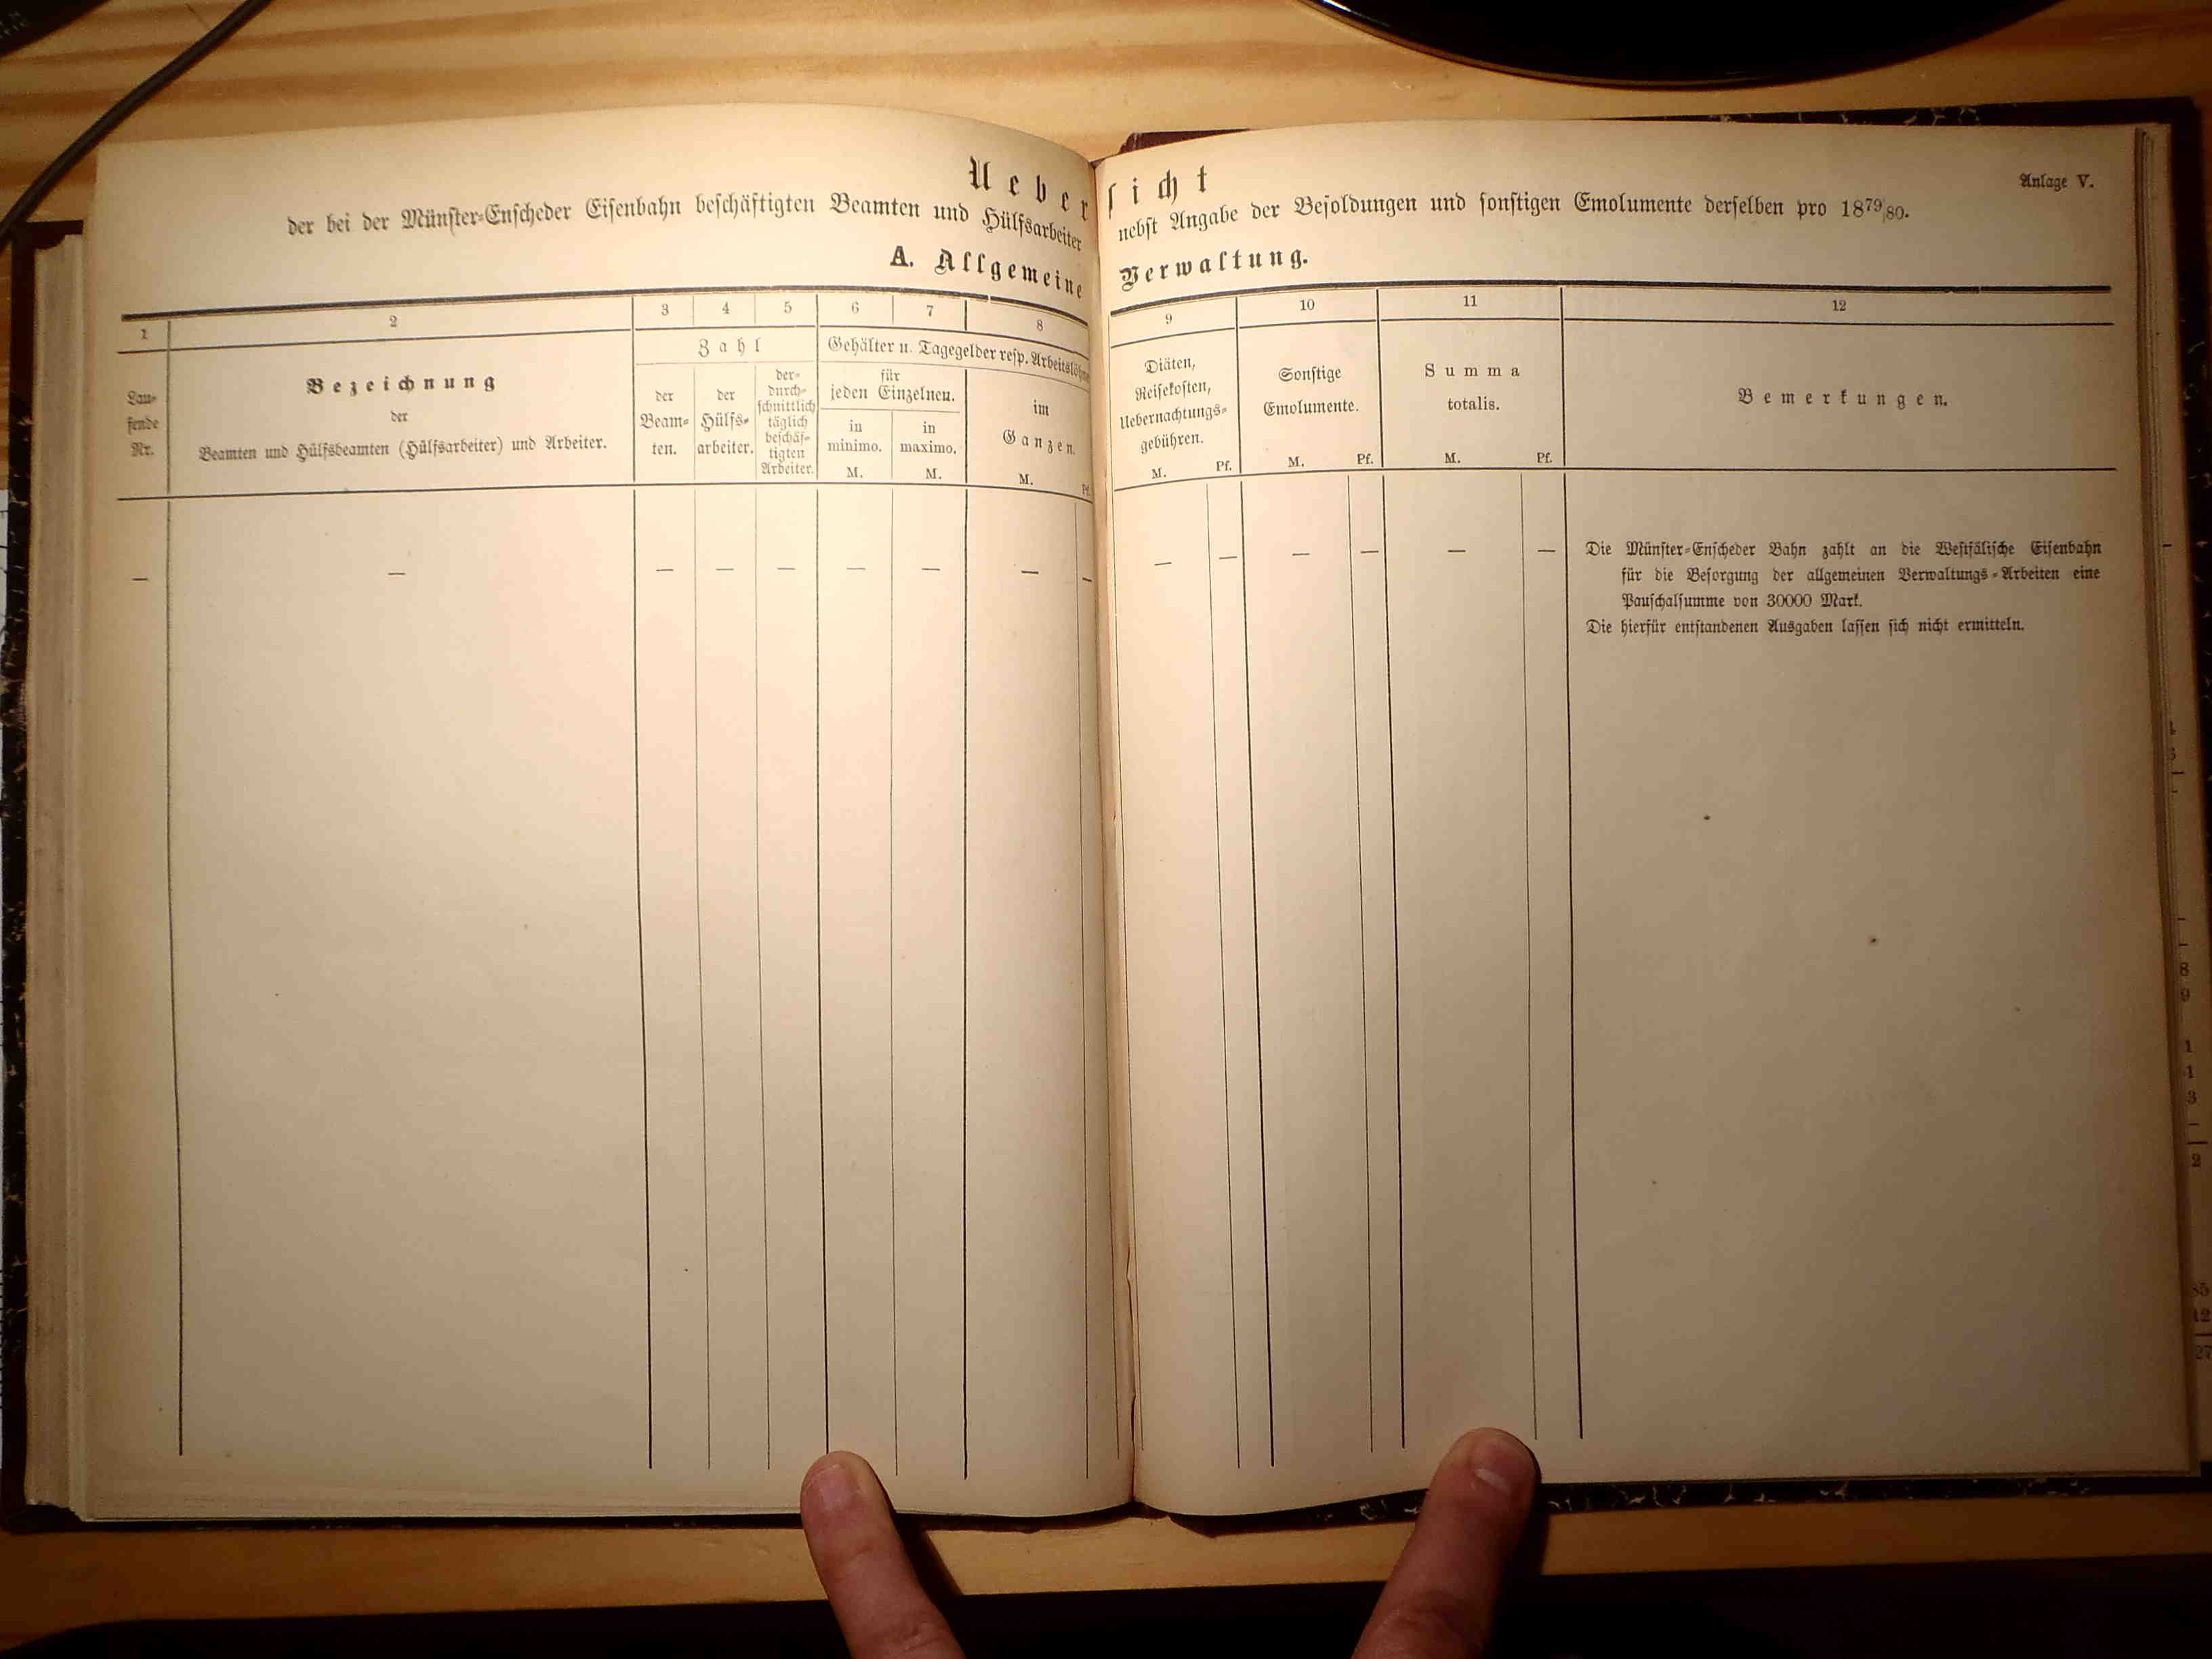 Uebersicht
Anlage V.
der bei der Münster-Enscheder Eisenbahn beschäftigten Beamten und Hülfsarbeiter nebst Angabe der Besoldungen und sonstigen Emolumente derselben pro 1879/80.
A. Allgemeine Verwaltung.
1 2 3 4 5 6 7 8 9 10 11 12
Lau-
fende
Nr.
Bezeichnung
der
Beamten und Hülfsbeamten (Hülfsarbeiter) und Arbeiter.
Zahl
der
Beam-
ten.
der
Hülfs-
arbeiter.
der-
durch-
schnittlich
täglich
beschäf-
tigten
Arbeiter.
Gehälter u. Tagegelder resp. Arbeitslöhne
für
jeden Einzelnen.
in
minimo.
M.
in
maximo.
M.
im
Ganzen.
M. Pf.
Diäten,
Reisekosten,
Uebernachtungs-
gebühren.
M. Pf.
Sonstige
Emolumente.
M. Pf.
Summa
totalis.
M. Pf.
Bemerkungen.
— — — — — — — — — — — — — — —
Die Münster-Enscheder Bahn zahlt an die Westfälische Eisenbahn
für die Besorgung der allgemeinen Verwaltungs-Arbeiten eine
Pauschalsumme von 30000 Mark.
Die hierfür entstandenen Ausgaben lassen sich nicht ermitteln.